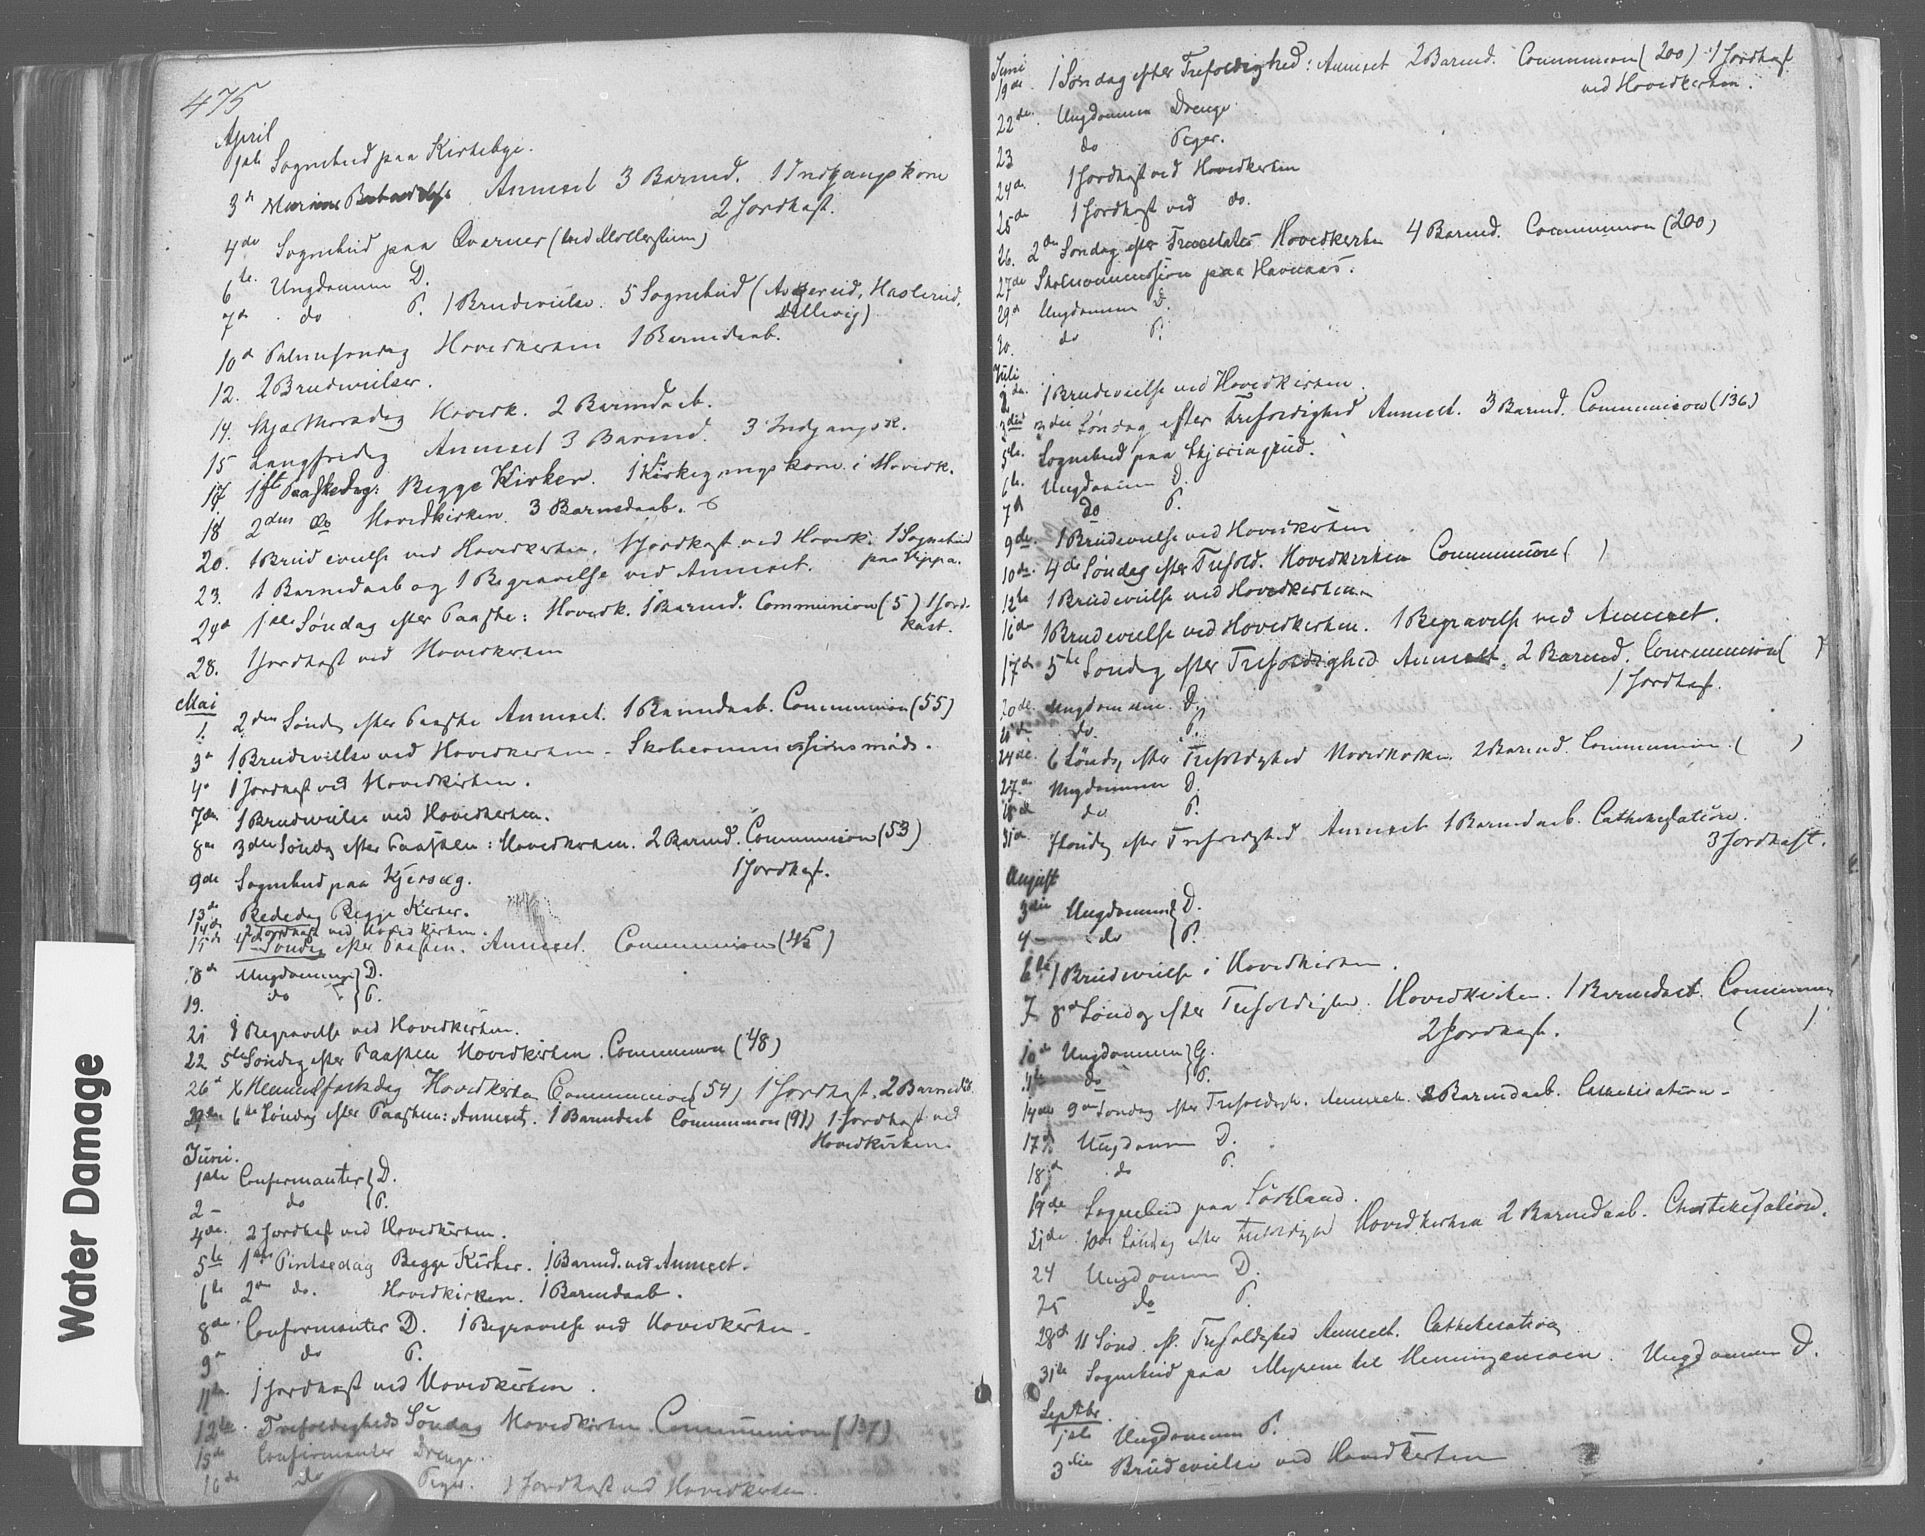 475
April
1ste Sognebud paa Kirkebye.
3de Mariæ Bebudelse Annexet 3 Barned. 1 Indgangskone
2 Jordkast.
4de Sognebud paa Qværner (ved Mollerstuen)
6te Ungdommen D.
7de do P. 1 Brudevielse. 5 Sognebud (Haslerud,
Ullevig)
10de Palmesøndag Hovedkirken 1 Barnedaab.
12. 2 Brudevielser.
14. Skjærthorsdag Hovedk. 2 Barnedaab.
15 Langfredag Annexet 3 Barned. 3 Indgangsk.
17 1ste Paaskedag: Begge Kirker. 1 Kirkegangskone i Hovedk.
18 2den do Hovedkirken. 3 Barnedaab.
20. 1 Brudevielse ved Hovedkirken. 1 Jordkast ved Hovedk. 1 Sognebud
23. 1 Barnedaab og 1 Begravelse ved Annexet. paa
24de 1ste Søndag efter Paaske: Hovedk. 1 Barned. Communion (5) 1 Jord-
kast.
28. 1 Jordkast ved Hovedkirken
Mai
1. 2den Søndag efter Paaske Annexet. 1 Barnedaab. Communion (55)
3de 1 Brudevielse ved Hovedkirken - Skolecommissionsmøde.
4de 1 Jordkast ved Hovedkirken.
7de 1 Brudevielse ved Hovedkirken.
8de 3die Søndag efter Paasken: Hovedkirken. 2 Barned. Communion (53)
1 Jordkast.
9de Sognebud paa Kjersveg.
13de Bededag Begge Kirker.
14de Jordkast ved Hovedkirken.
15de 4de Søndag efter Paasken. Annexet. Communion (45)
18de Ungdommen D.
19. do P.
21 1 Begravelse ved Hovedkirken.
22 5te Søndag efter Paasken Hovedkirken. Communion (48)
26de Himmelfartsdag Hovedkirken Communion (54) 1 Jordkast. 2 Barnedaab
29de 6te Søndag efter Paasken: Annexet. 1 Barnedaab Communion (91) 1 Jordkast ved
Hovedkirken.
Juni.
1ste Confirmanter D.
2 - do P.
4de 2 Jordkast ved Hovedkirken.
5te 1ste Pintsedag Begge Kirker. 1 Barned. ved Annexet.
6te 2den do. Hovedkirken. 1 Barnedaab.
8de Confirmanter D. 1 Begravelse ved Hovedkirken.
9de do P.
11te 1 Jordkast ved Hovedkirken.
12te Trefoldigheds Søndag Hovedkirken Communion (137)
15de Confirmanter Drenge.
16de do Piger. 1 Jordkast ved Hovedkirken.
Juni
19de 1 Søndag efter Trefoldighed: Annexet 2 Barned. Communion (200) 1 Jordkast
ved Hovedkirken.
22de Ungdommen Drenge.
23 do Piger.
24de 1 Jordkast ved Hovedkirken
25de 1 Jordkast ved do.
26. 2den Søndag efter Trinitatis Hovedkirken 4 Barned. Communion (200)
27de Skolecommission paa Havnaas.
29de Ungdommen D.
30. do P.
Juli
2de 1 Brudevielse ved Hovedkirken.
3die 3die Søndag efter Trefoldighed Annexet. 3 Barned. Communion (136)
5te Sognebud paa Skjæringrud.
6te Ungdommen D.
7de do P.
9de 1 Brudevielse ved Hovedkirken
10de 4de Søndag efter Trefold. Hovedkirken Communion ( )
12te 1 Brudevielse ved Hovedkirken.
16de 1 Brudevielse ved Hovedkirken. 1 Begravelse ved Annexet.
17de 5te Søndag efter Trefoldighed Annexet. 2 Barned. Communion ( )
1 Jordkast.
20de Ungdommen. D.
21de do. P.
24de 6 Søndag efter Trefoldighed Hovedkirken. 2 Barned. Communion ( )
27de Ungdommen D.
28de do P.
31te 7 Søndag efter Trefoldighed Annexet 1 Barnedaab. Cathekisation.
3 Jordkast.
August
3die Ungdommen D.
4 - do P.
6te 1 Brudevielse i Hovedkirken.
7 8de Søndag efter Trefoldighed. Hovedkirken. 1 Barnedaab. Communion
2 Jordkast. ( )
10de Ungdommen G.
11te do P.
14de 9de Søndag efter Trefoldigh. Annexet. 2 Barnedaab. Cathekisation -
17de Ungdommen D.
18de do P.
19de Sognebud paa Sørkland.
21de 10de Søndag efter Trefoldighed Hovedkirken 2 Barnedaab. Chatekisation.
24 Ungdommen D.
25 do P.
28de 11 Sønd. ef. Trefoldighed Annexet. Cathekisation
31te Sognebud paa Myrene til Hemingsmoen. Ungdommen D.
Septbr.
1ste Ungdommen P.
3die Brudevielse ved Hovedkirken
Water Damage